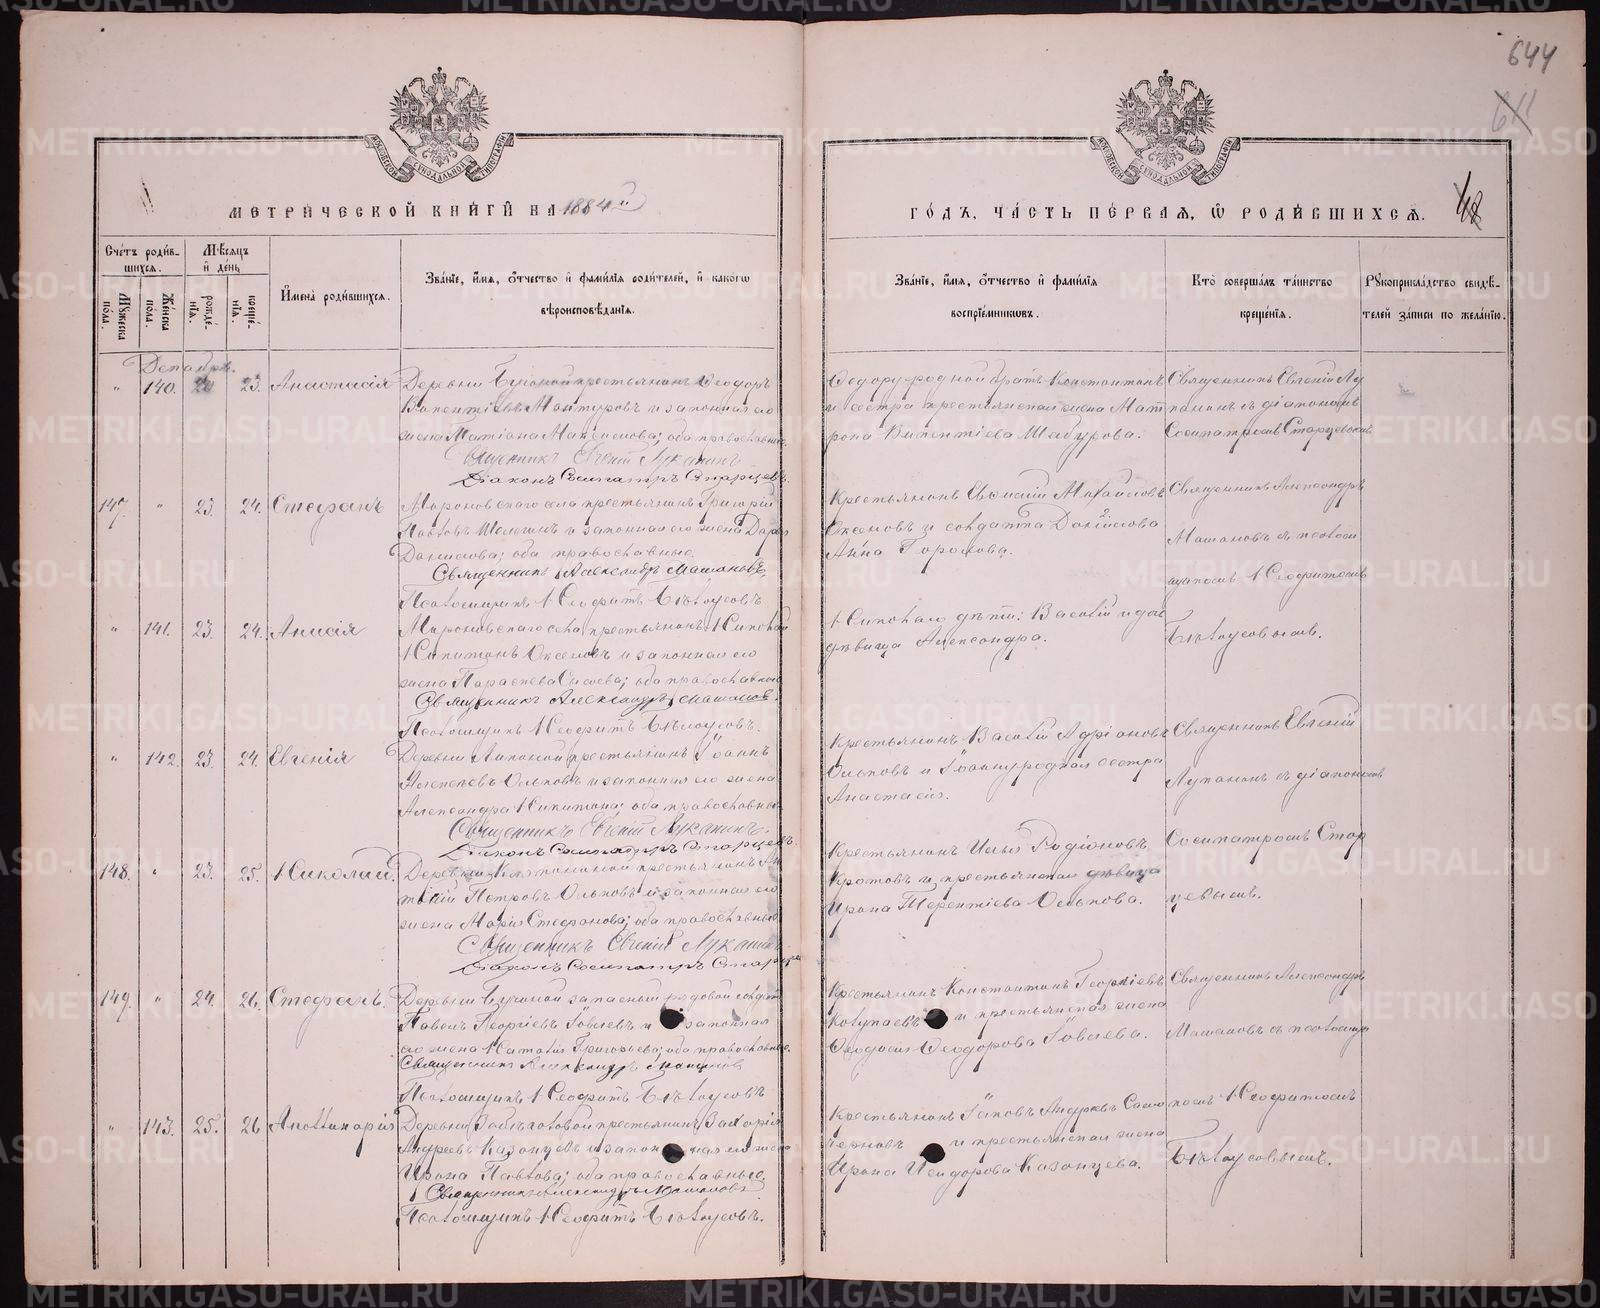 644
611
МОСКОВСКОЙ СѴНОДАЛЬНОЙ ТИПОГРАФІИ
МОСКОВСКОЙ СѴНОДАЛЬНОЙ ТИПОГРАФІИ
МЕТРИЧЕСКОЙ КНИГИ НА 1884 й
ГОДЪ, ЧАСТЬ ПЕРВАЯ, Ѡ РОДИВШИХСЯ.
Счетъ родившихся.
Мужеска пола.
Женска пола.
Мѣсяцъ и день
рожденія.
крещенія.
Имена родившихся.
Званіе, имя, отчество и фамилія родителей, и какогѡ
вѣроисповѣданія.
Званіе, имя, отчество и фамилія
воспріемникѡвъ.
Кто совершалъ таинство
крещенія.
Рукоприкладство свидѣтелей записи по желанію.
Декабрь.
" 140. 20 23. Анастасія
Деревни крестьянинъ Ѳеодоръ
Викентіевъ Мантуровъ и законная его
жена Татіана Максимова; оба православные.
Священникъ Евгеній Луканинъ
Діаконъ Сосипатръ Старцевъ.
Ѳедору родной братъ Константинъ
и сестра крестьянская жена Мат
рона Викентіева Шабурова.
Священникъ Евгеній Лу
канинъ съ діакономъ
Сосипатромъ Старцевымъ
147. " 23. 24. Стефанъ
Мироновскаго села крестьянинъ Григорій
Павловъ и законная его жена Дарья
Данилова; оба православные.
Священникъ Александръ Машановъ,
Псаломщикъ Неофитъ Бѣлоусовъ
Крестьянинъ Евѳимій Михайловъ
и солдатка
Анна
Священникъ Александръ
Машановъ съ псалом
щикомъ Неофитомъ
Бѣлоусовымъ.
" 141. 23. 24. Анисія
Мироновскаго села крестьянинъ Николай
Никитинъ и законная его
жена Параскева оба православные
Священникъ Александръ Машановъ.
Псаломщикъ Неофитъ Бѣлоусовъ.
Николаю дѣти: Василій и
дѣвица Александра.
" 142. 23. 24. Евгенія
Деревни Липовой крестьянинъ Іоаннъ
Алексѣевъ Ольковъ и законная его жена
Александра Никитина; оба православные
Священникъ Евгеній Луканинъ.
Діаконъ Сосипатръ Старцевъ.
Крестьянинъ Василій Адріановъ
Ольковъ и Іоанну родная сестра
Анастасія.
Священникъ Евгеній
Луканинъ съ діакономъ
Сосипатромъ Стар
цевымъ.
148. " 23. 25. Николай.
Деревни крестьянинъ
Петровъ Ольковъ и законная его
жена Марія Стефанова; оба православные
Священникъ Евгеній Луканинъ
Діаконъ Сосипатръ Старцевъ
Крестьянинъ Илья Родіоновъ
Кротовъ и крестьянская дѣвица
Ирина Терентіева Олькова.
149. " 24. 26. Стефанъ.
Деревни запасный рядовой солдатъ
Павелъ Георгіевъ Іовлевъ и законная
его жена Наталія Григорьева; оба православные.
Священникъ Александръ Машановъ
Псаломщикъ Неофитъ Бѣлоусовъ
Крестьянинъ Константинъ Георгіевъ
Колупаевъ и крестьянская жена
Ѳеодосія Ѳеодорова Іовлева.
Священникъ Александръ
Машановъ съ псаломщи
комъ Неофитомъ
Бѣлоусовымъ.
" 143. 25. 26 Аполлинарія
Деревни крестьянинъ Захарія
Андреевъ Казанцевъ и законная его жена
Ирина Павлова; оба православные
Священникъ Александръ Машановъ
Псаломщикъ Неофитъ Бѣлоусовъ.
Крестьянинъ Іаковъ Андреевъ
и крестьянская жена
Ирина Исидорова Казанцева.
METRIKI.GASO-URAL.RU